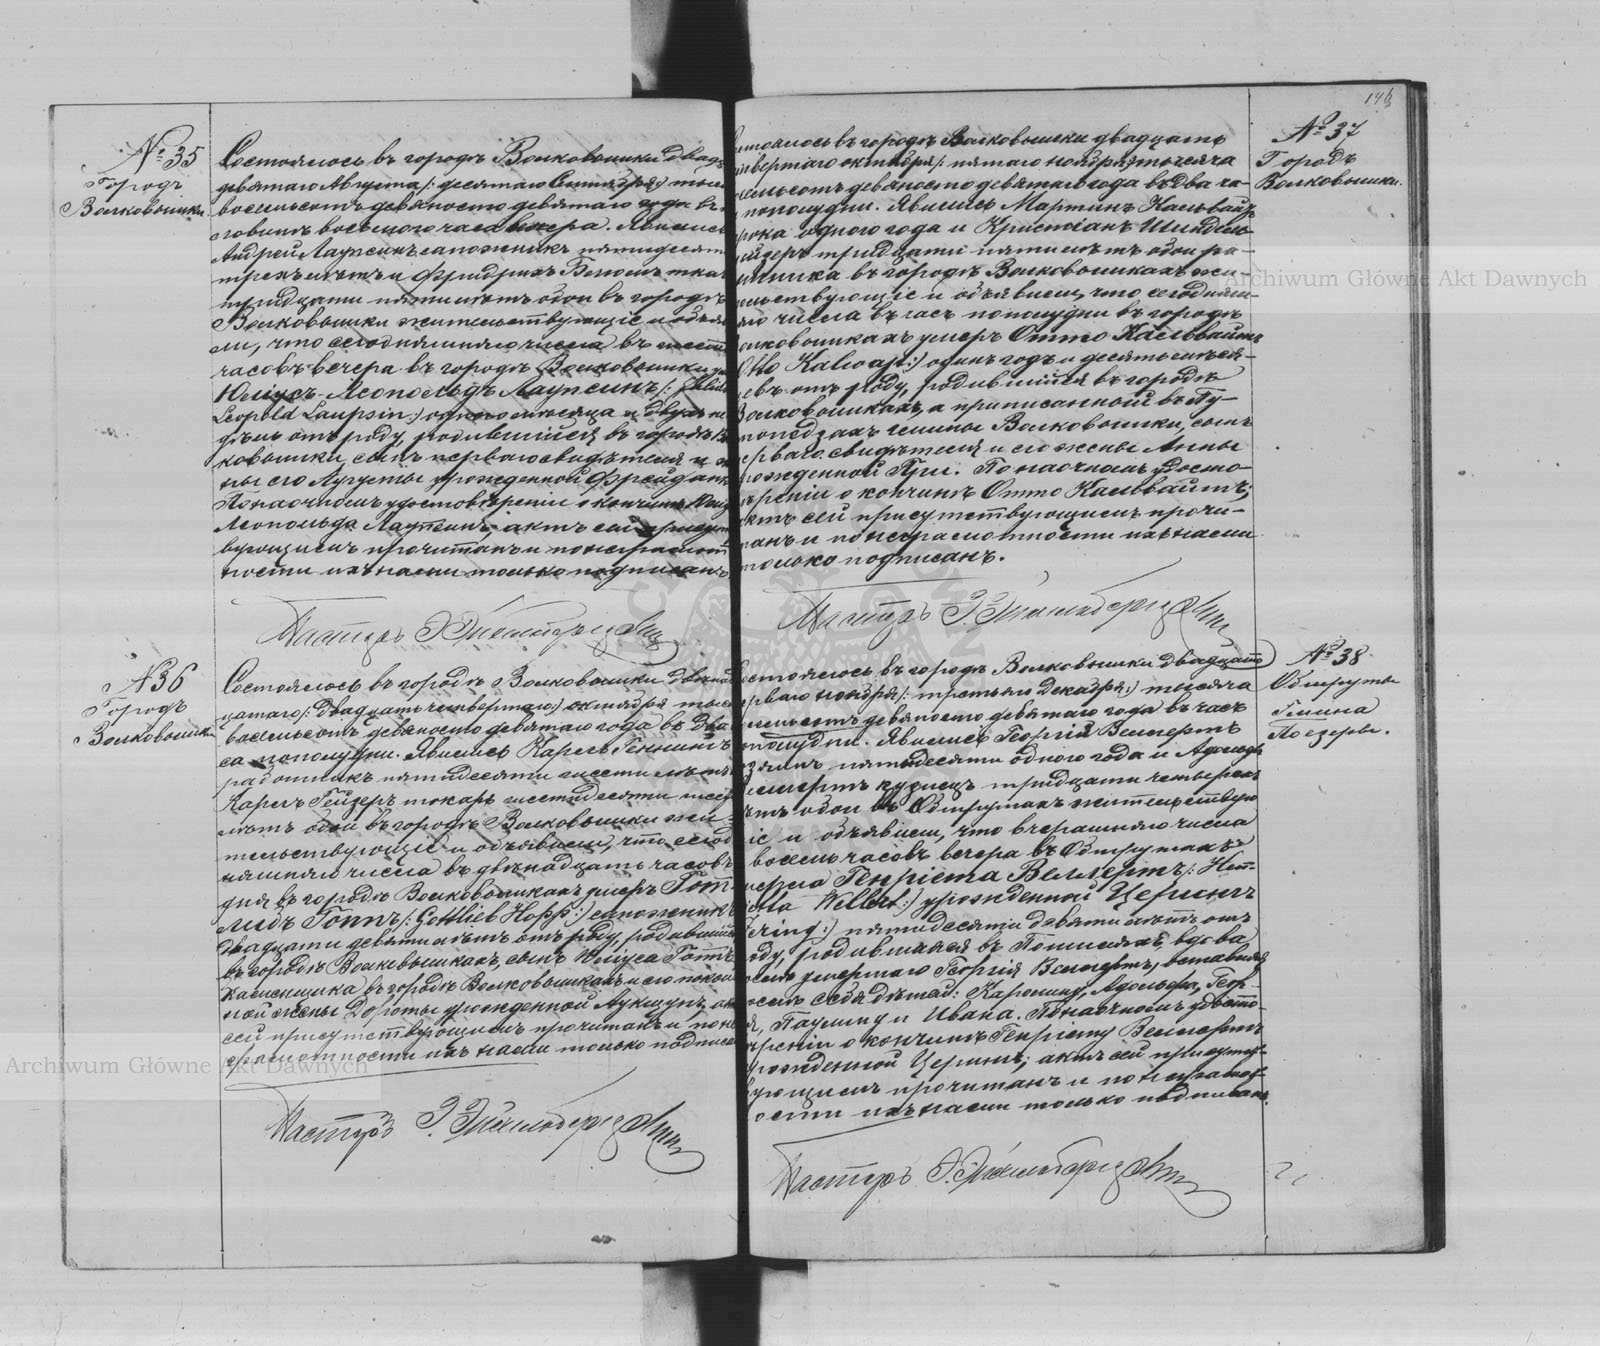 № 35
Городъ
Волковышки.
Состоялось въ городѣ Волковышки двад
девятаго Августа /: десятаго Сентября :/ тыся
восемьсотъ девяносто девятаго года въ
восьмого часа вечера. Явились
Андрей Лаупсинъ сапожникъ пятидесяти
трехъ лѣтъ и Фридрихъ
тридцати пяти лѣтъ обои въ городѣ
Волковышки жительствующіе и объяви
ли, что сегодняшняго числа въ шесть
часовъ вечера въ городѣ Волковышки
Юліусъ-Леопольдъ Лаупсинъ /: Julius
Leopold Laupsin :/ одного мѣсяца и двухъ не
дѣль отъ роду, родившійся въ городѣ
ковышки, сынъ перваго свидѣтеля и
ны его Августы урожденной
По наочномъ удостовѣреніи о кончинѣ
Леопольда Лаупсинъ, актъ сей присут
вующимъ прочитанъ и по неграмот
ности ихъ нами только подписанъ
Пасторъ
№ 36
Городъ
Волковышки
Состоялось въ городѣ Волковышки двѣнад
цатаго /: двадцать четвертаго :/ октября тыс
восемьсотъ девяносто девятаго года въ два
са пополудни. Явились Карлъ Геннингъ
работникъ пятидесяти шести лѣтъ
Карлъ Гейзеръ токарь шестидесяти
лѣтъ обои въ городѣ Волковышки жи-
тельствующіе и объявили, что сегод
няшняго числа въ двѣнадцать часовъ
дня въ городѣ Волковышкахъ умеръ Гот-
либъ Гоппъ /: Gottlieb Hopp :/ сапожникъ
двадцати девяти лѣтъ отъ роду, родившійся
въ городѣ Волковышкахъ, сынъ Юліуса Гоппъ
каменщика въ городѣ Волковышкахъ и его покой
ной жены Дороты урожденной
сей присутствующимъ прочитанъ и по не
грамотности ихъ нами только подписа
Пасторъ
146
№ 37
Городъ
Волковышки.
стоялось въ городѣ Волковышки двадцать
твертаго октября /: пятаго ноября :/ тысяча
емьсотъ девяносто девятаго года въ два ча-
пополудни. Явились Мартинъ Кальвайтъ
рока одного года и Христіанъ Шиндель
йдеръ тридцати пяти лѣтъ обои ра-
тника въ городѣ Волковышкахъ жи-
льствующіе и объявили, что сегодняш-
яго числа въ часъ пополудни въ городѣ
олковышкахъ умеръ Отто Кальвайтъ
Otto Kalwajt :/ одинъ годъ и десять мѣся-
евъ отъ роду, родившійся въ городѣ
Волковышкахъ, а приписанный въ
гмины Волковышки, сынъ
перваго свидѣтеля и его жены Анны
рожденной По наочномъ удосто-
вѣреніи о кончинѣ Отто Кальвайтъ,
актъ сей присутствующимъ прочи-
танъ и по неграмотности ихъ нами
только подписанъ.
Пасторъ
№ 38
Обшруты
Гмина
Поезеры.
остоялось въ городѣ Волковышки двадцать
перваго ноября /: третьяго Декабря :/ тысяча
емьсотъ девяносто девятаго года въ часъ
пополудни. Явились Георгій Веллертъ
пятидесяти одного года и Адольфъ
Веллертъ кузнецъ тридцати четырехъ
лѣтъ обои въ Обшрутахъ жительствую
іе и объявили, что вчерашняго числа
восемь часовъ вечера въ Обшрутахъ
умерла Генріета Веллертъ /: Hen-
rieta Wellert :/ урожденной Церингъ
ering :/ пятидесяти девяти лѣтъ отъ
оду, родившаяся въ вдова
умершаго Георгія Веллертъ, оставивъ
послѣ себя дѣтей: Каролину, Адольфа, Геор-
я, Паулину и Ивана. По наочномъ удосто-
вѣреніи о кончинѣ Генріеты Веллертъ
рожденной Церингъ, актъ сей присутст-
вующимъ прочитанъ и по неграмот-
ности ихъ нами только подписанъ.
Пасторъ
Archiwum Główne Akt Dawnych
Archiwum Główne Akt Dawnych